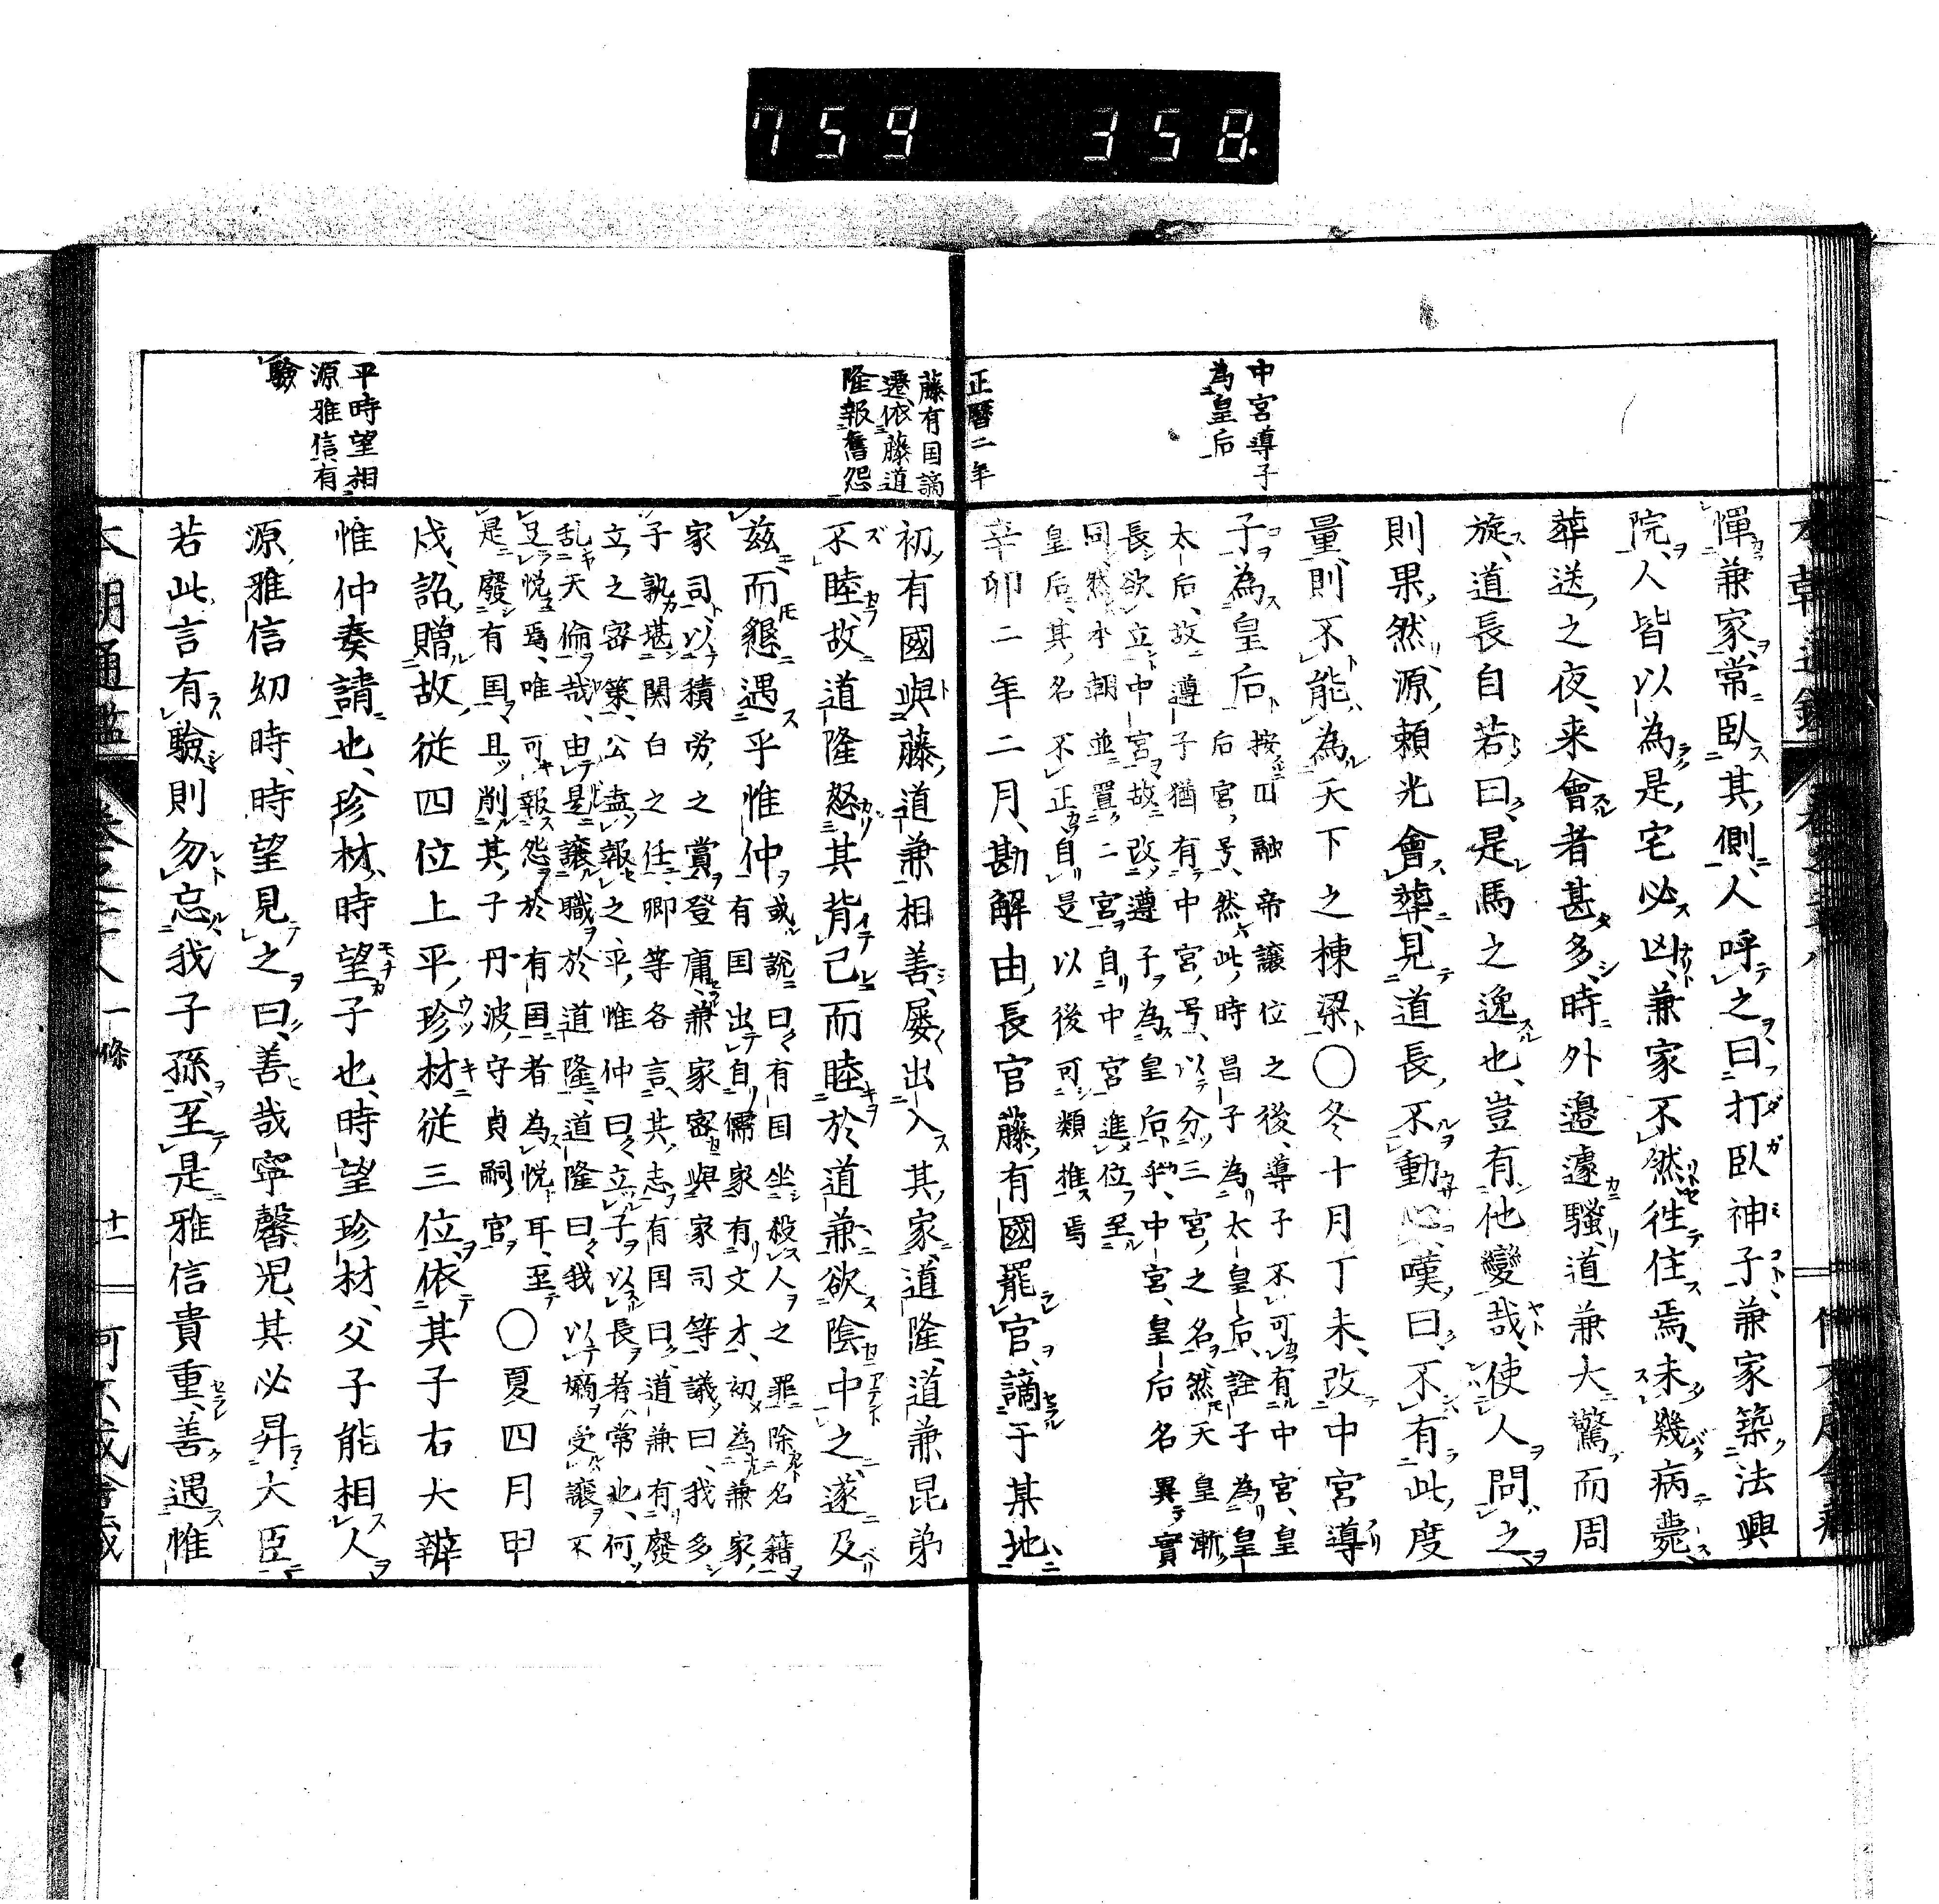 759 358.
中宮導子
為皇后
憚兼家常臥其側人呼之曰打臥神子兼家築法興
院人皆以為是宅必凶兼家不然徃住焉未幾病薨
葬送之夜来會者甚多時外邉遽騷道兼大驚而周
旋道長自若曰是馬之逸也豈有他變哉使人問之
則果然源頼光會葬見道長不動心嘆曰不有此度
量則不能為天下之棟梁〇冬十月丁未改中宮導
子為皇后
按円融帝讓位之後導子不可有中宮皇
后宮号然此時昌子為太皇后詮子為皇
太后故遵子猶有中宮号以分三宮之名然天皇漸
長欲立中宮故改遵子為皇后乎中宮皇后名異實
同然本朝並置二宮自中宮進位至
皇后其名不正自是以後可類推焉
正曆二年
辛卯二年二月勘解由長官藤有國罷官謫于某地
藤有国謫
遷依藤道
隆報舊怨
初有國與藤道兼相善屡出入其家道隆道兼昆弟
不睦故道隆怒其背己而睦於道兼欲陰中之遂及
茲而懇遇乎惟仲
或說曰有国坐殺人之罪除名籍
有国出自儒家有文才初為兼家
家司以積勞之賞登庸兼家密與家司等議曰我多
子孰堪関白之任卿等各言其志有国曰道兼有廢
立之密策公盍報之乎惟仲曰立子以長者常也何
乱天倫哉由是譲職於道隆道隆曰我以嫡受讓不
足悦焉唯可報怨於有国者為悦耳至
是廢有国且削其子丹波守貞嗣官
〇夏四月甲
戍詔贈故従四位上平珍材従三位依其子右大辨
惟仲奏請也珍材時望子也時望珍材父子能相人
平時望相
源雅信有
驗
源雅信幼時時望見之曰善哉寧馨児其必昇大臣
若此言有驗則勿忘我子孫至是雅信貴重善遇惟
本朝通鑑 一條 十一